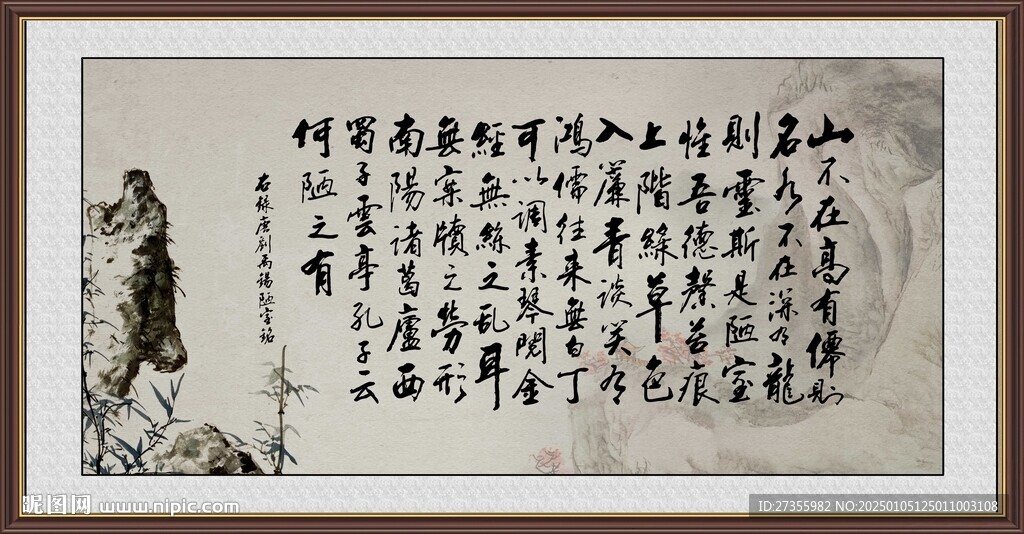 山不在高有僊則
名水不在深有龍
則靈斯是陋室
惟吾德馨苔痕
上階綠草色
入簾青談笑有
鴻儒往来無白丁
可以調素琴閱金
經無絲之亂耳
無案牘之勞形
南陽諸葛廬西
蜀子雲亭孔子云
何陋之有
右錄唐劉禹錫陋室銘
昵图网 www.nipic.com
ID:27355982 NO:20250105125011003108